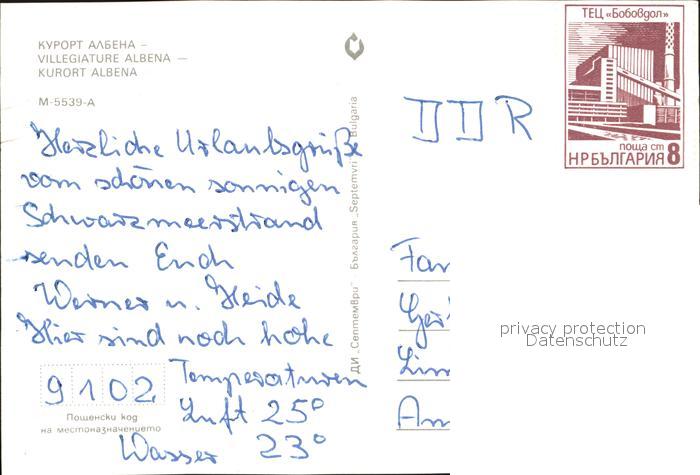 КУРОРТ АЛБЕНА –
VILLEGIATURE ALBENA —
KURORT ALBENA
М-5539-А
Herzliche Urlaubsgrüße
vom schönen sonnigen
Schwarzmeerstrand
senden Euch
Werner u. Heide
Hier sind noch hohe
Temperaturen
Luft 25°
Wasser 23°
9102
Пощенски код
на местоназначението
ДИ „Септември" България „Septemvri" Bulgaria
ТЕЦ «Бобовдол»
поща ст 8
НР БЪЛГАРИЯ
DDR
Fam
Ger
Lin
Am
privacy protection
Datenschutz